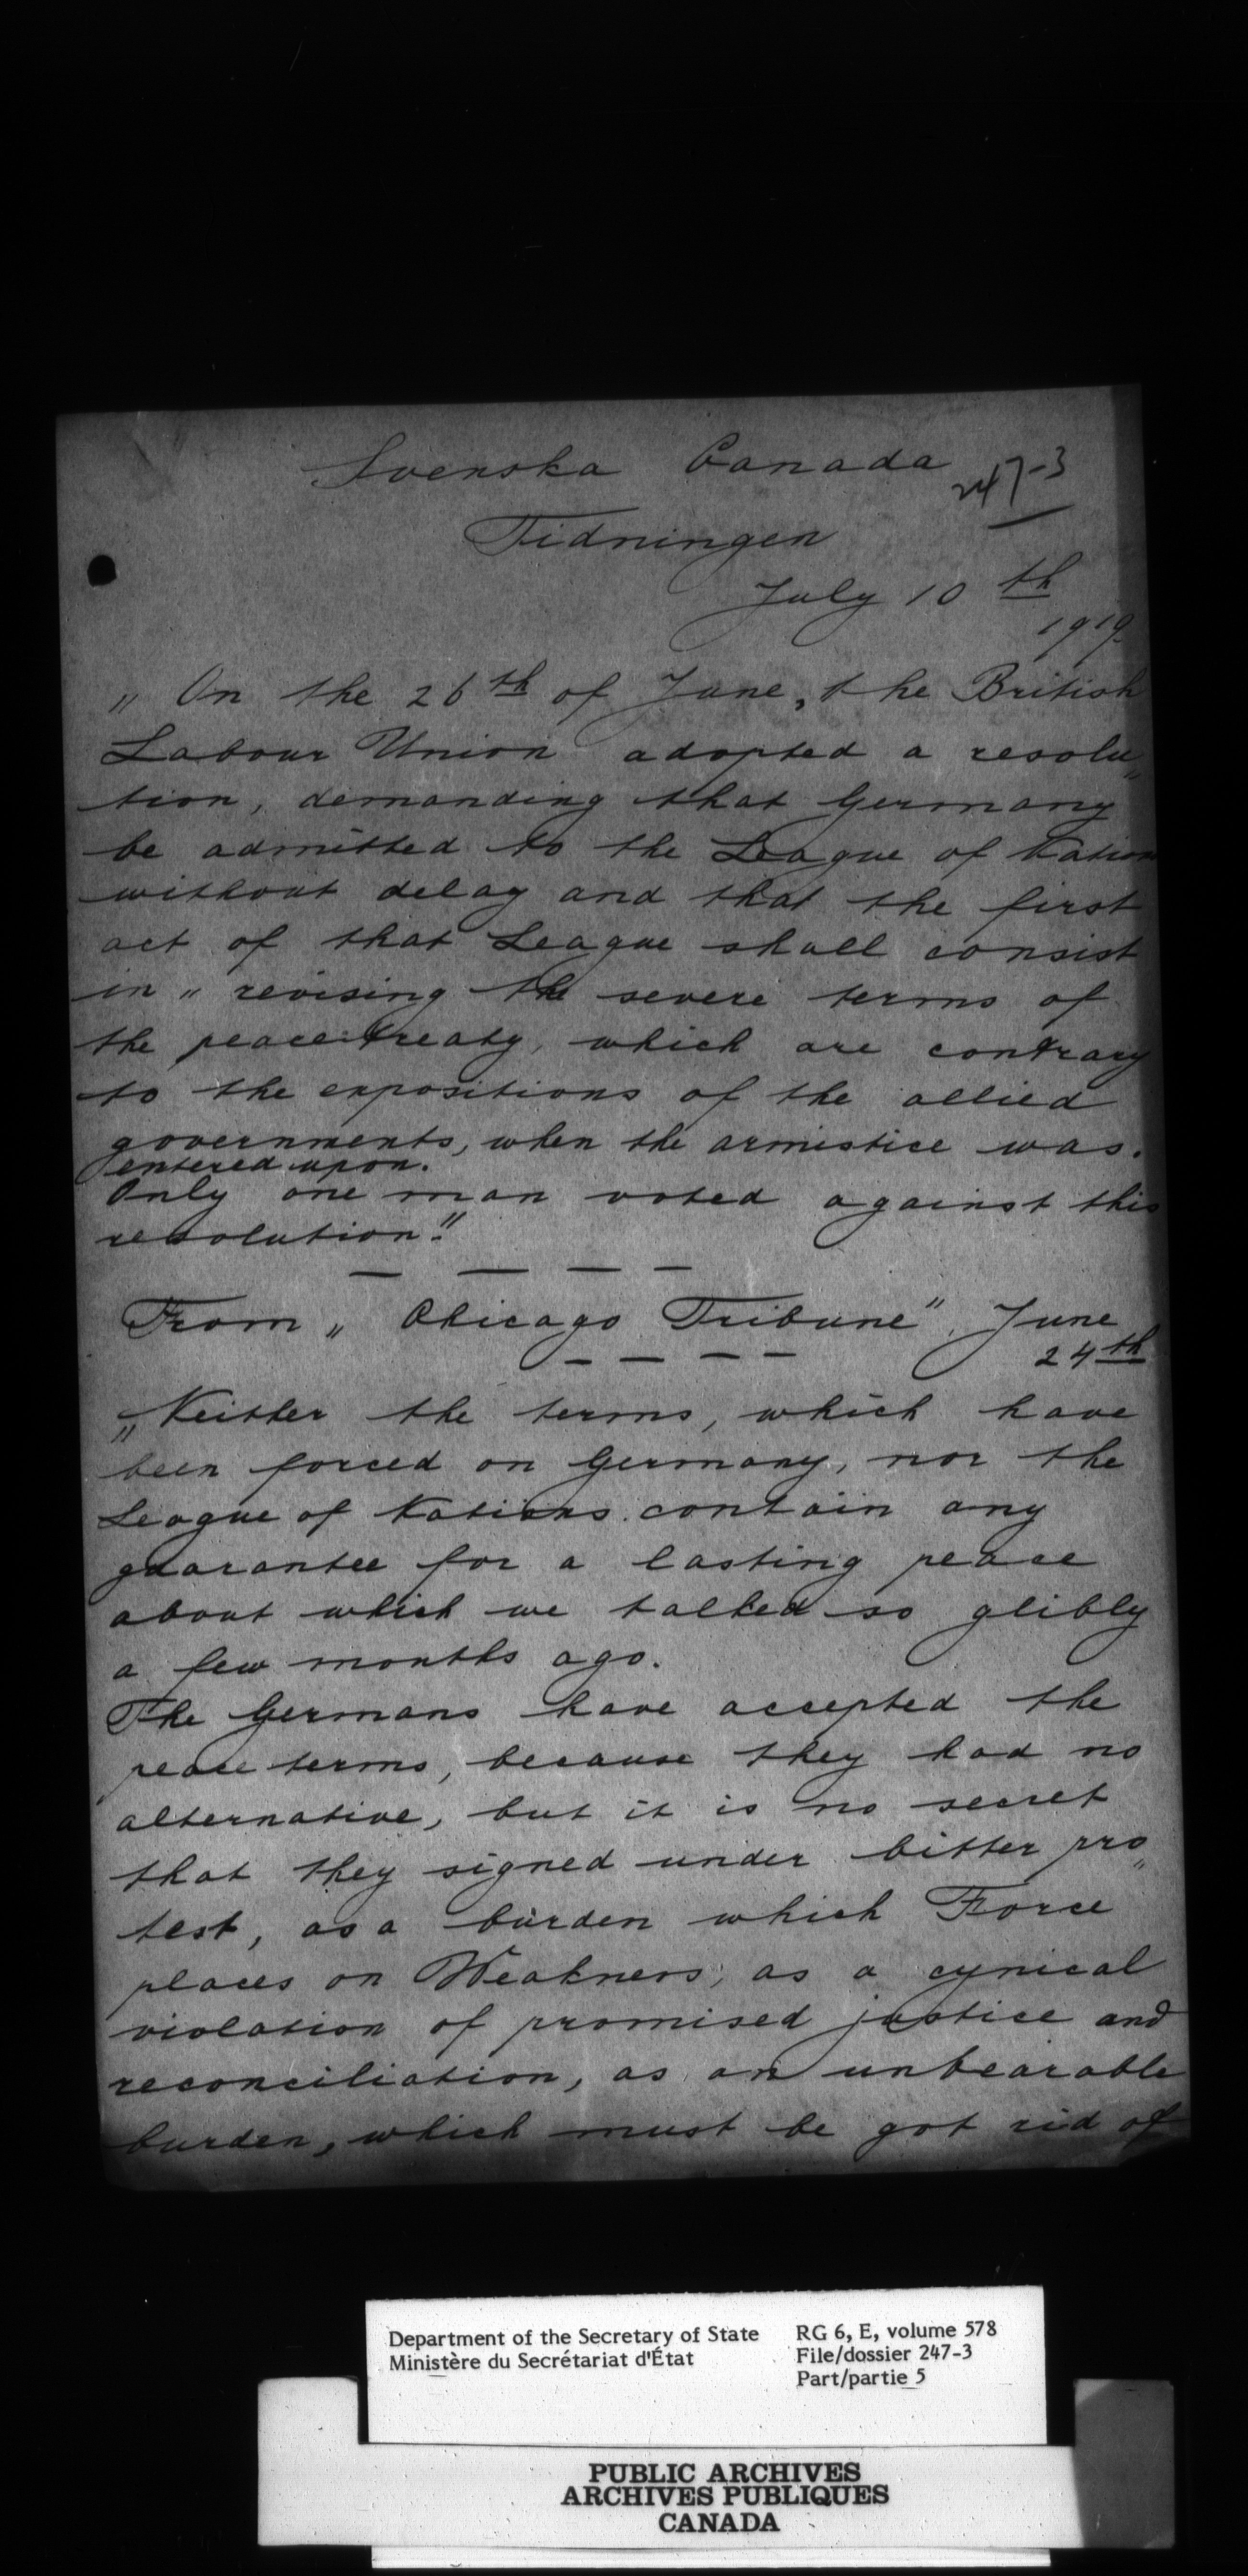 Svenska Canada
247-3
Tidningen
July 10th
1919.
„ On the 26th of June, the British
Labour Union adopted a resolu„
tion, demanding that Germany
be admitted to the League of Nations
without delay and that the first
act of that League shall consist
in „ revising the severe terms of
the peace-treaty, which are contrary
to the expositions of the allied
governments, when the armistice was.
entered upon.
Only one man voted against this
resolution."
— — — —
From „ Chicago Tribune", June
24th
— — — —
„Neither the terms, which have
been forced on Germany, nor the
League of Nations contain any
guarantee for a lasting peace
about which we talked so glibly
a few months ago.
The Germans have accepted the
peace terms, because they had no
alternative, but it is no secret
that they signed under bitter pro„
test, as a burden which Force
places on Weakness, as a cynical
violation of promised justice and
reconciliation, as an unbearable
burden, which must be got rid of
Department of the Secretary of State
Ministère du Secrétariat d'État
RG 6, E, volume 578
File/dossier 247-3
Part/partie 5
PUBLIC ARCHIVES
ARCHIVES PUBLIQUES
CANADA